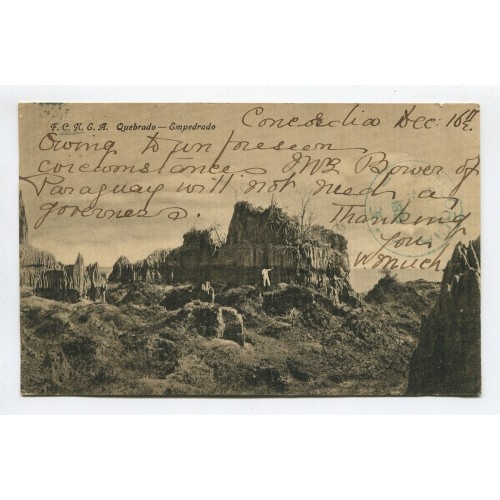 F.C.N.E.A. Quebrado — Empedrado
Concordia Dec: 16th
Owing to unforeseen
circumstances Mrs Bower of
Paraguay will not need a
governess. Thanking
you
v. much